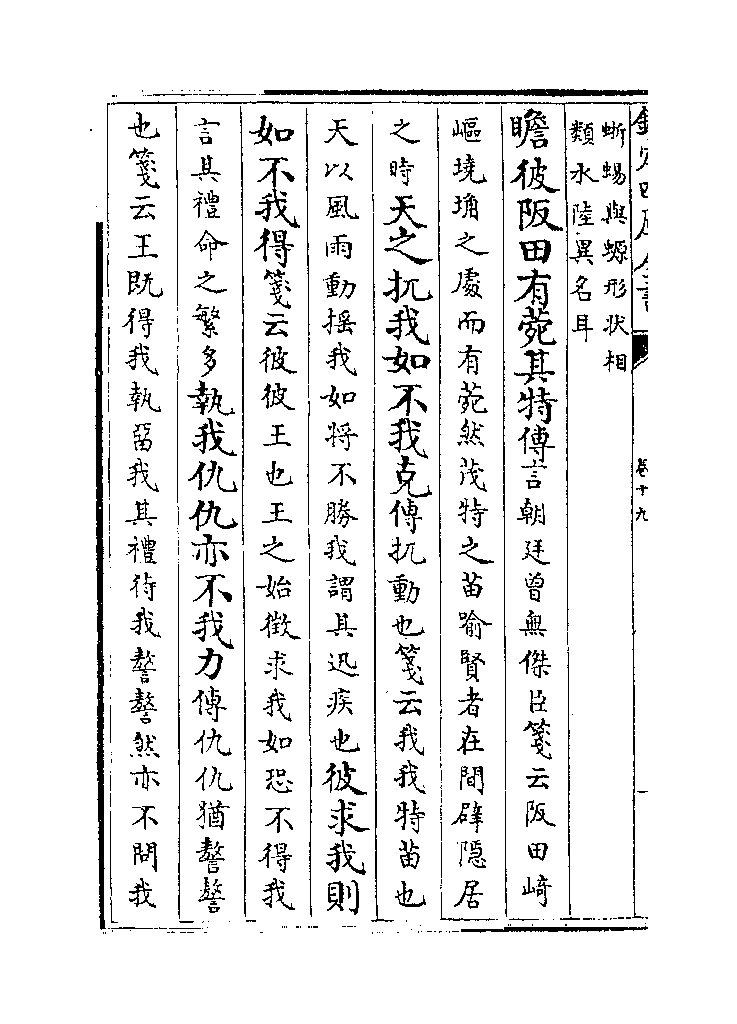 欽定四庫全書
卷十九
蜥蜴與螈形状相
類水陸異名耳
瞻彼阪田有菀其特傳言朝廷曾無傑臣箋云阪田崎
嶇墝埆之處而有菀然茂特之苗喻賢者在間辟隠居
之時天之扤我如不我克傳扤動也箋云我我特苗也
天以風雨動揺我如将不勝我謂其迅疾也彼求我則
如不我得箋云彼彼王也王之始徴求我如恐不得我
言其禮命之繁多執我仇仇亦不我力傳仇仇猶謷謷
也箋云王既得我執留我其禮待我謷謷然亦不問我